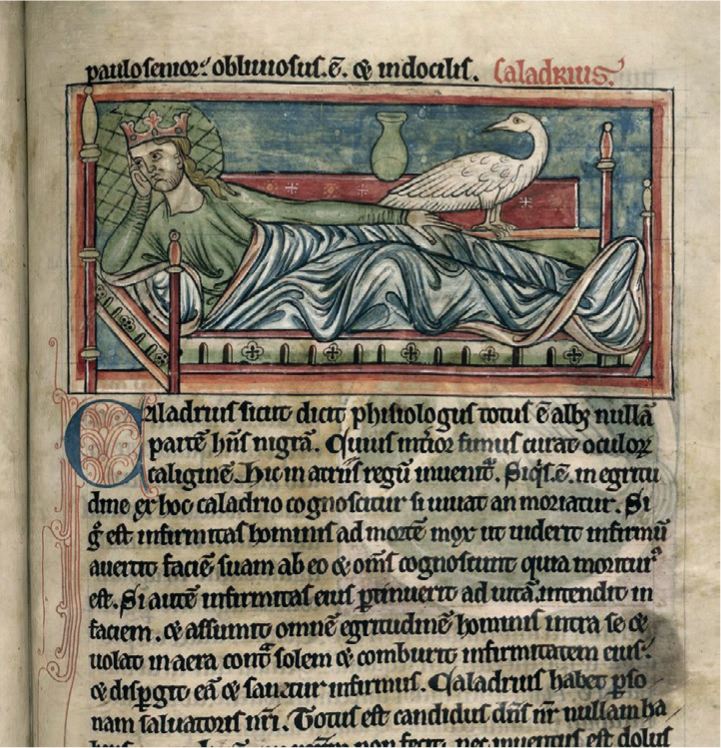 paulo senior. obliuiosus. ē. & indocilis. Caladrius.
Caladrius sicut dicit phisiologus totus ē albꝰ nullā
partē hn̄s nigrā. Cuius int̓ior fimus curat oculoꝝ
caliginē. Hic in atriis regū inuenit᷑. Si qͥs. ē. in egritu
dine ex hoc caladrio cognoscitur si uiuat an moriatur. Si
gͦ est infirmitas hominis ad mortē mox ut uiderit infirmū
auertit faciē suam ab eo & om̄s cognoscunt quia moriturꝰ
est. Si autē infirmitas eius ꝑtinuerit ad uitā. intendit in
faciem. & assumit omnē egritudinē hominis intra se &
uolat in aera cont̄ solem & comburit infirmitatem eius.
& disꝑgit eā & sanatur infirmus. Caladrius habet ꝑso
nam saluatoris nr̄i. Totus est candidus dn̄s nr̄ nullam ha
non fecit. nec inuentus est dolus